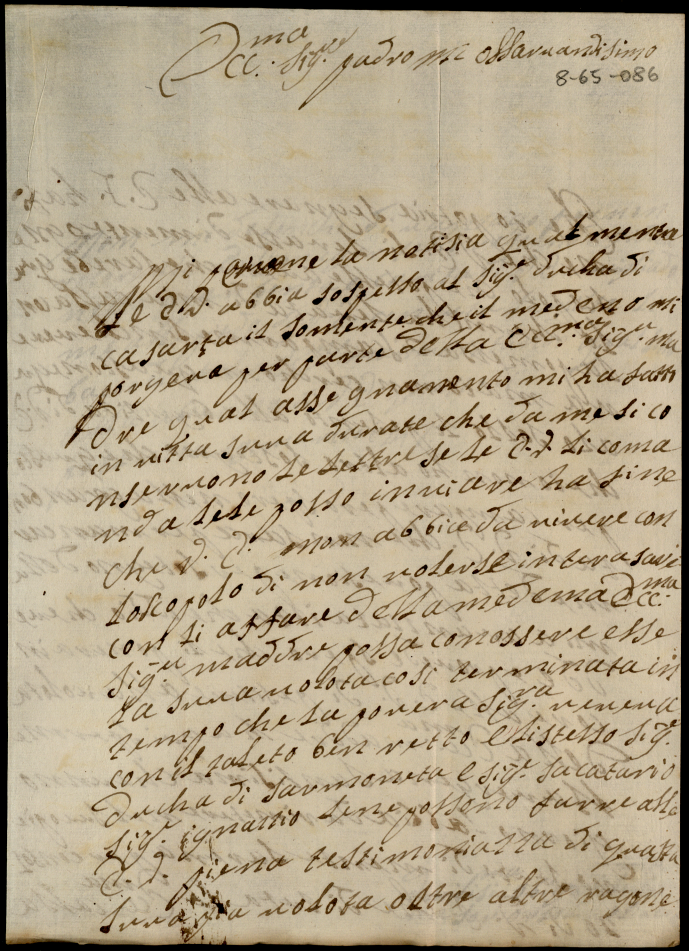 Ecc.ma Sig.re padro mi osservandisimo
8-65-086
Mi pervene la notisia qualmente
Le E. V. abbia sospetto al Sig.r ducha di
casarta il somente che il medemo mi
porgeva per parte della Ecc.ma Sig.ra ma
dre qual assegnamento mi ha fatto
in vitta suva durate che da me si co
nservono le lettre se le E. V. li coma
nda le le posso inviare ha fine
che V. E. non abbia da vivere con
lo scopolo di non volerse interasare
con li affare della medema Ecc.ma
Sig.ra maddre possa conossere esse
la suva volota cosi terminata in
tempo che la povera Sig.ra viveva
con il saleto ben retto e listesso Sig.r
ducha di sarmoneta e Sig.r sacatario
Sig.r ignattio lene possono farre alle
E. V. piena testimonianza di questa
suva volota oltre altre ragone